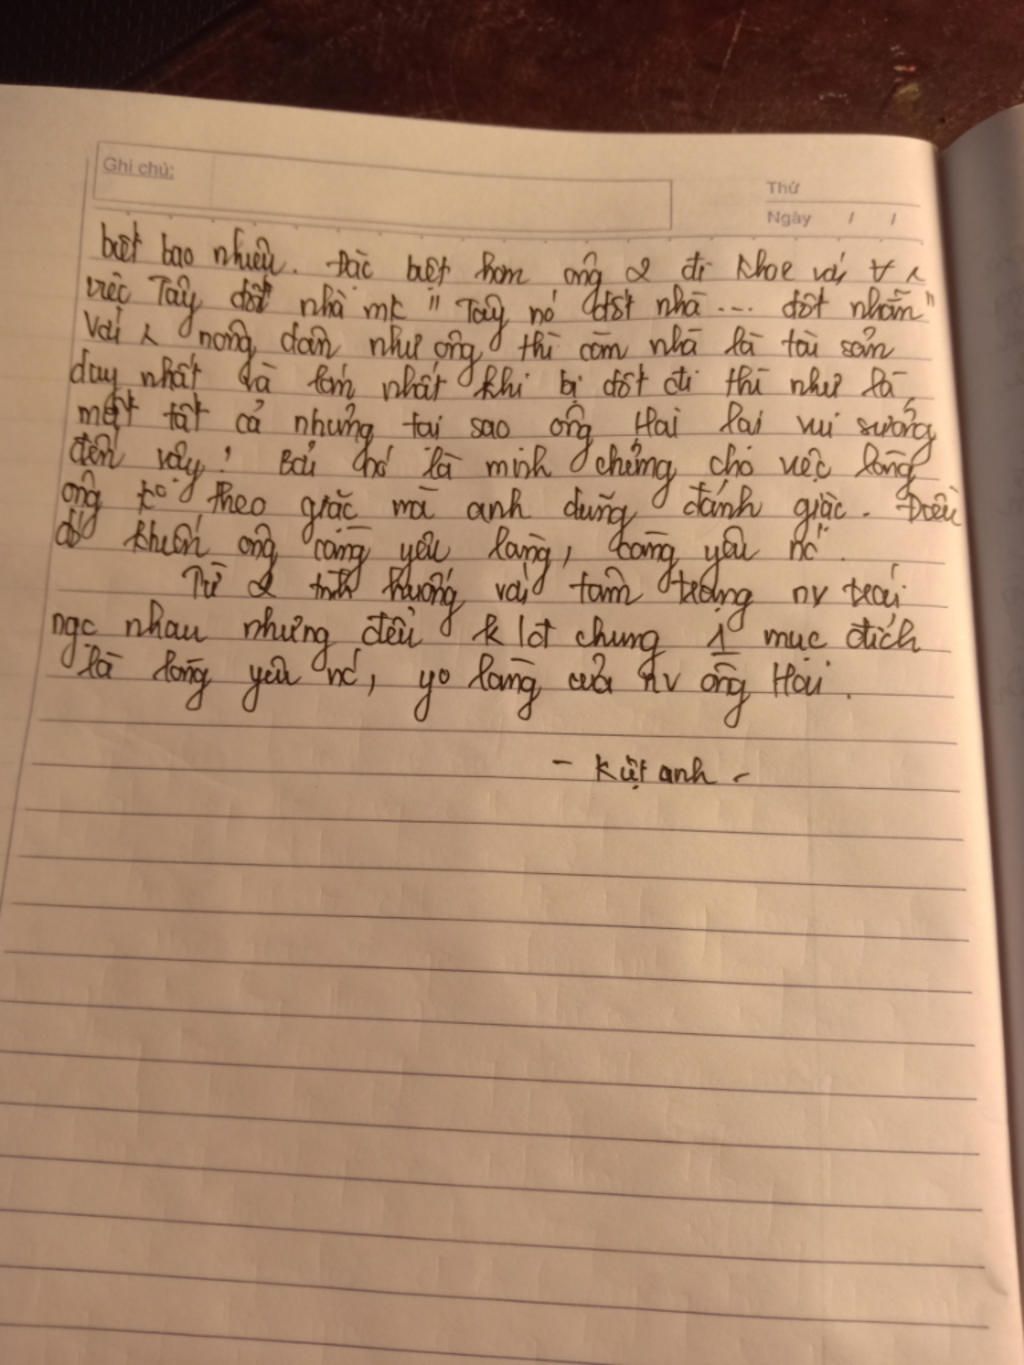 Ghi chú:
Thứ
Ngày / /
biết bao nhiêu. Đặc biệt hơn ông 2 đi khoe với ∀
việc Tây đốt nhà mk "Tây nó đốt nhà ... đốt nhẵn"
Với nông dân như ông thì căn nhà là tài sản
duy nhất và lớn nhất khi bị đốt đi thì như là
mất tất cả nhưng tại sao ông Hai lại vui sướng
đến vậy! Bởi nó là minh chứng cho việc làng
ông ko theo giặc mà anh dũng đánh giặc. Điều
đó khiến ông càng yêu làng, càng yêu nc.
Từ 2 tình huống với tâm trạng nv trái
ngc nhau nhưng đều chung 1 mục đích
là lòng yêu nc, yo làng của nv ông Hai.
- kiệt anh -